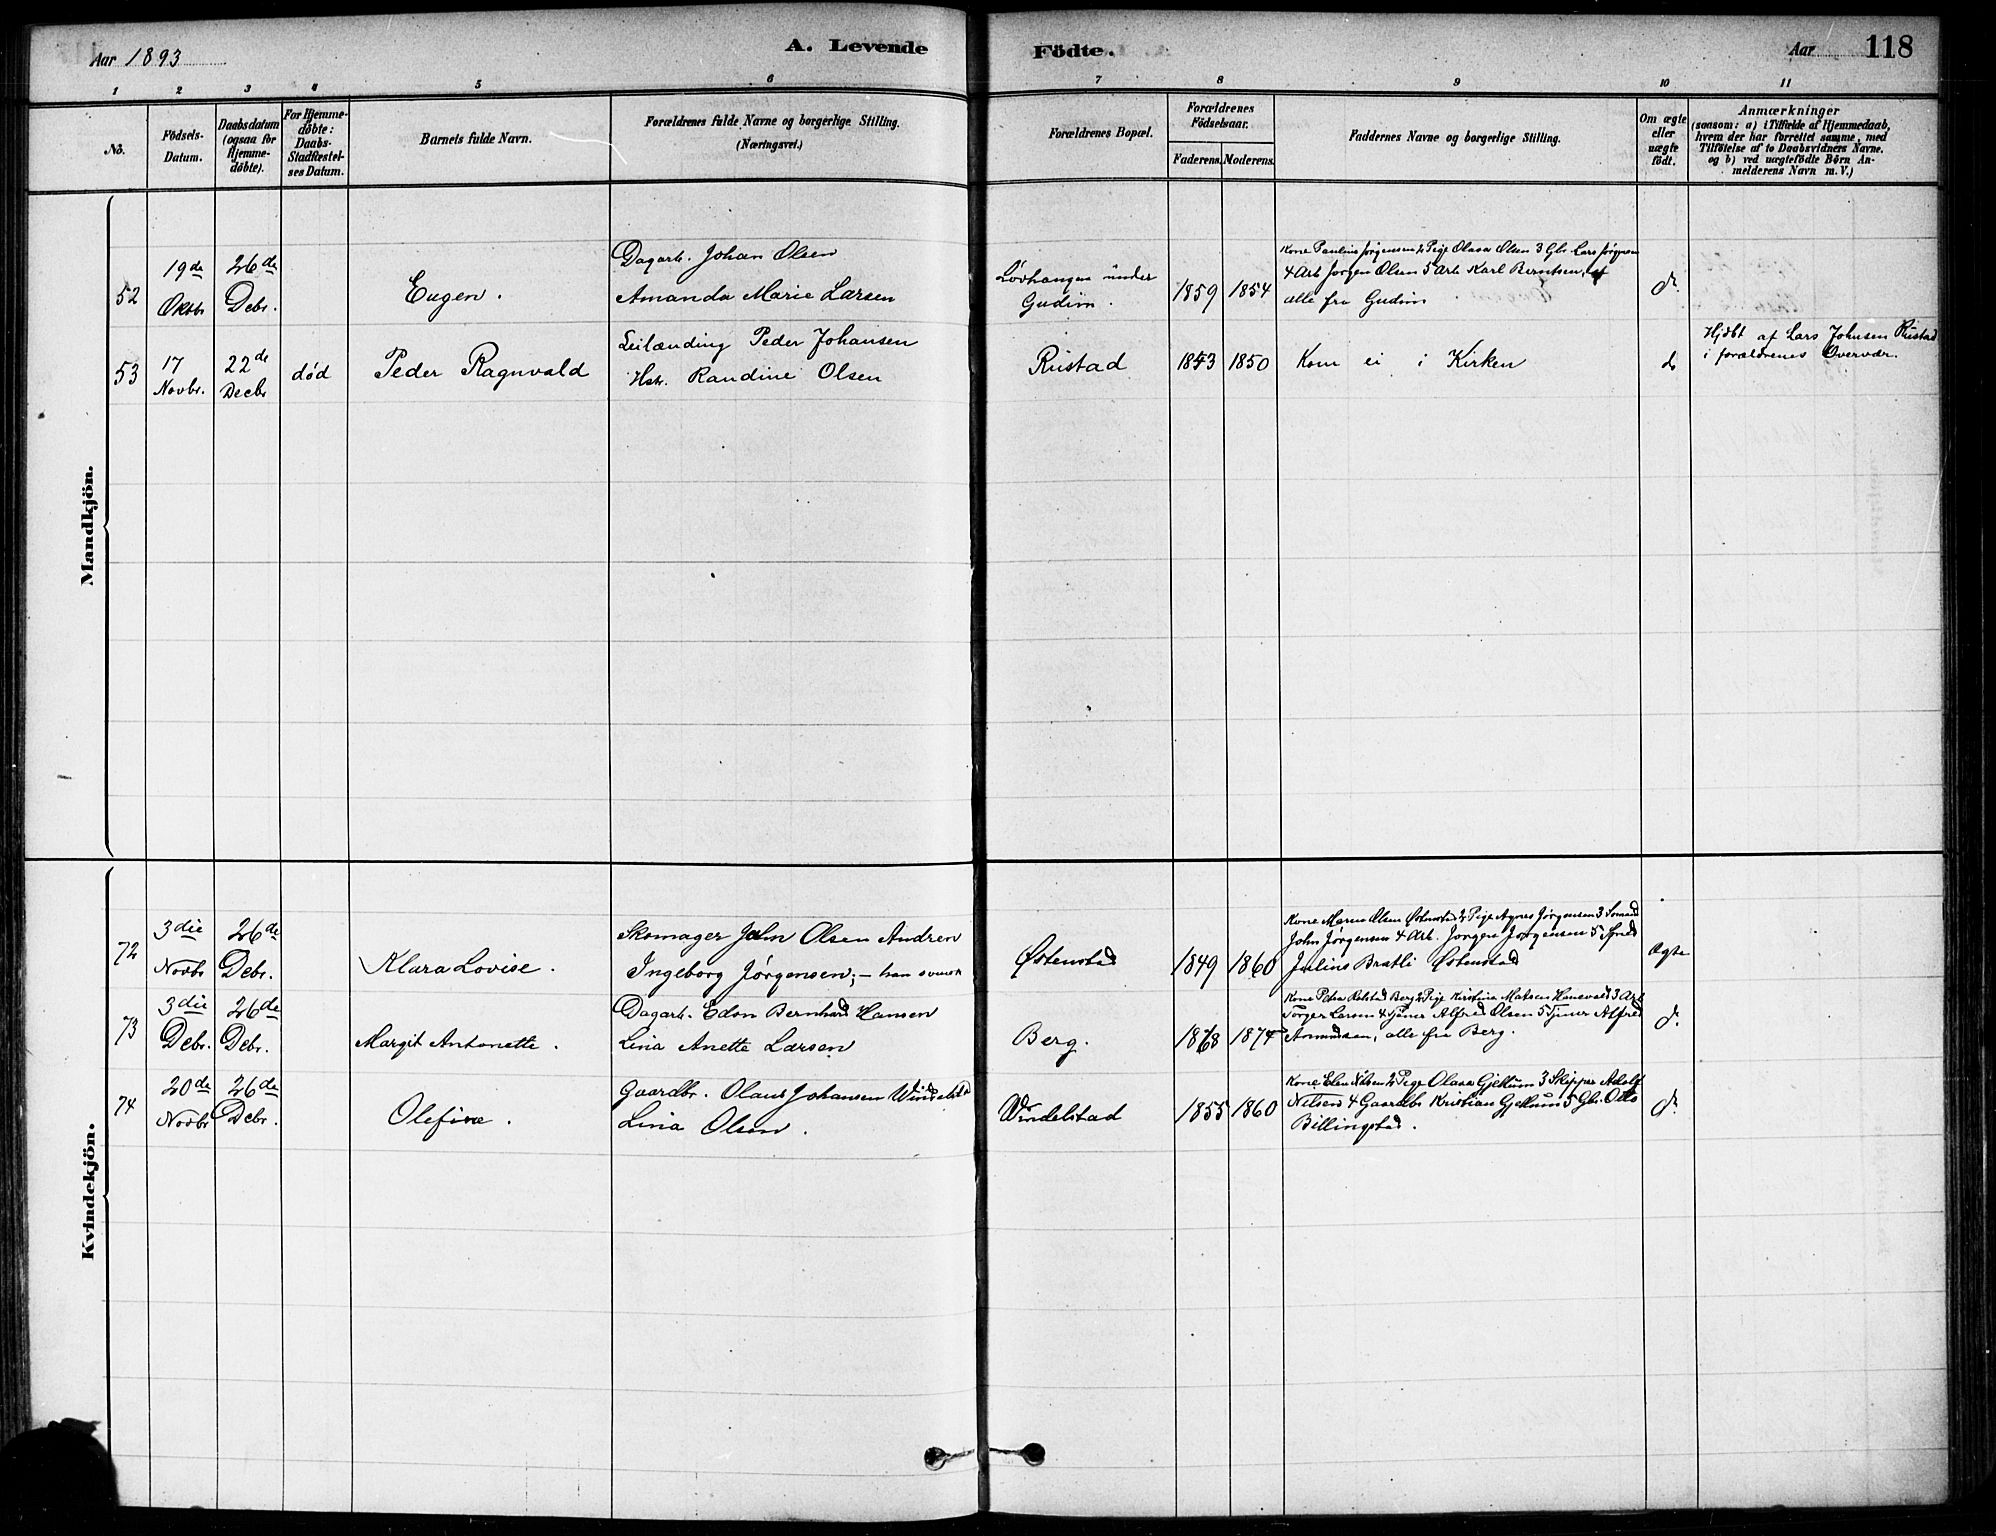 Aar 1893
A. Levende
Födte.
Aar
118
1 2 3 4 5 6 7 8 9 10 11
No.
Födsels-
Datum.
Daabsdatum
(ogsaa for
Hjemme-
døbte).
For Hjemme-
døbte:
Daabs-
Stadfæstel-
ses Datum.
Barnets fulde Navn.
Forældrenes fulde Navne og borgerlige Stilling.
(Næringsvei.)
Forældrenes Bopæl.
Forældrenes
Födselsaar.
Faderens. Moderens.
Faddernes Navne og borgerlige Stilling.
Om ægte
eller
uægte
födt.
Anmærkninger
(saasom: a) i Tilfælde af Hjemmedaab,
hvem der har forrettet samme, med
Tilföielse af to Daabsvidners Navne.
og b) ved uægtefödte Börn An-
melderens Navn m. V.)
Mandkjön.
52
19de
Oktbr
26de
Debr.
Eugen.
Dagarb. Johan Olsen
Amanda Marie Larsen
Løvhangen under
Gudim.
1859 1854
Kone Pauline Jørgensen 2 Pige Olava Olsen 3 Gbr. Lars Jørgensen
4 Arb Jørgen Olsen 5 Arb Karl Berntsen,
alle fra Gudim
d.
53
17
Novbr.
22de
Decbr
død
Peder Ragnvald
Leilænding Peder Johansen
Hstr. Randine Olsen
Rustad
1853 1850
Kom ei i Kirken
do
Hjdbt af Lars Johnsen Rustad
i forældrenes Overvær.
Kvindekjön.
72
3die
Novbr
26de
Debr.
Klara Lovise.
Skomager John Olsen Andren
Ingeborg Jørgensen; – han svensk
Østenstad
1849 1860
Kone Maren Olsen Østenstad 2 Pige Agnes Jørgensen 3 Sømand
John Jørgensen 4 Arb. Jørgen Jørgensen 5
Julius Bratli Østenstad
Ægte
73
3die
Debr.
26de
Debr.
Margit Antonette.
Dagarb. Edon Bernhard Hansen
Lina Anette Larsen
Berg.
1868 1874
Kone Petra Berg 2 Pige Kirstine Matsen 3 Arb
Torger Larsen 4 Tjener Alfred Olsen 5 Tjener Alfred
Amundsen, alle fra Berg.
d.
74
20de
Novbr
26de
Debr.
Olefine.
Gaardbr. Olaus Johansen Windelstad
Lina Olsen.
Windelstad
1855 1860
Kone Elen Nilsen 2 Pige Olava Gjellum 3 Skipper Adolf
Nilsen 4 Gaardbr Kristian Gjellum 5 Gbr. Otto
Billingstad.
d.